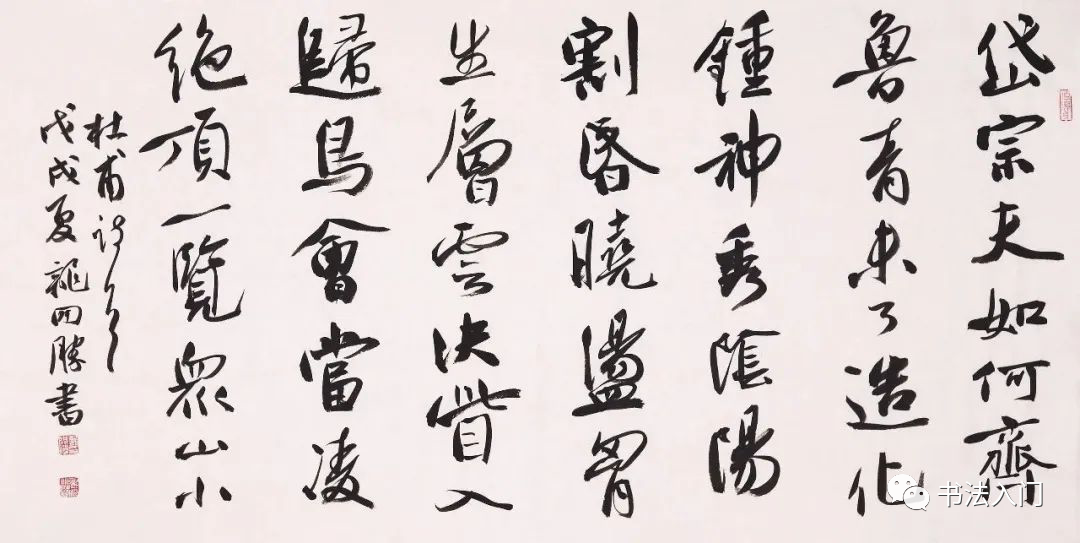 岱宗夫如何齊
魯青未了造化
鍾神秀陰陽
割昏曉盪胷
生層雲決眥入
歸鳥會當凌
絶頂一覽衆山小
杜甫诗
戊戌夏龍四勝書
书法入门